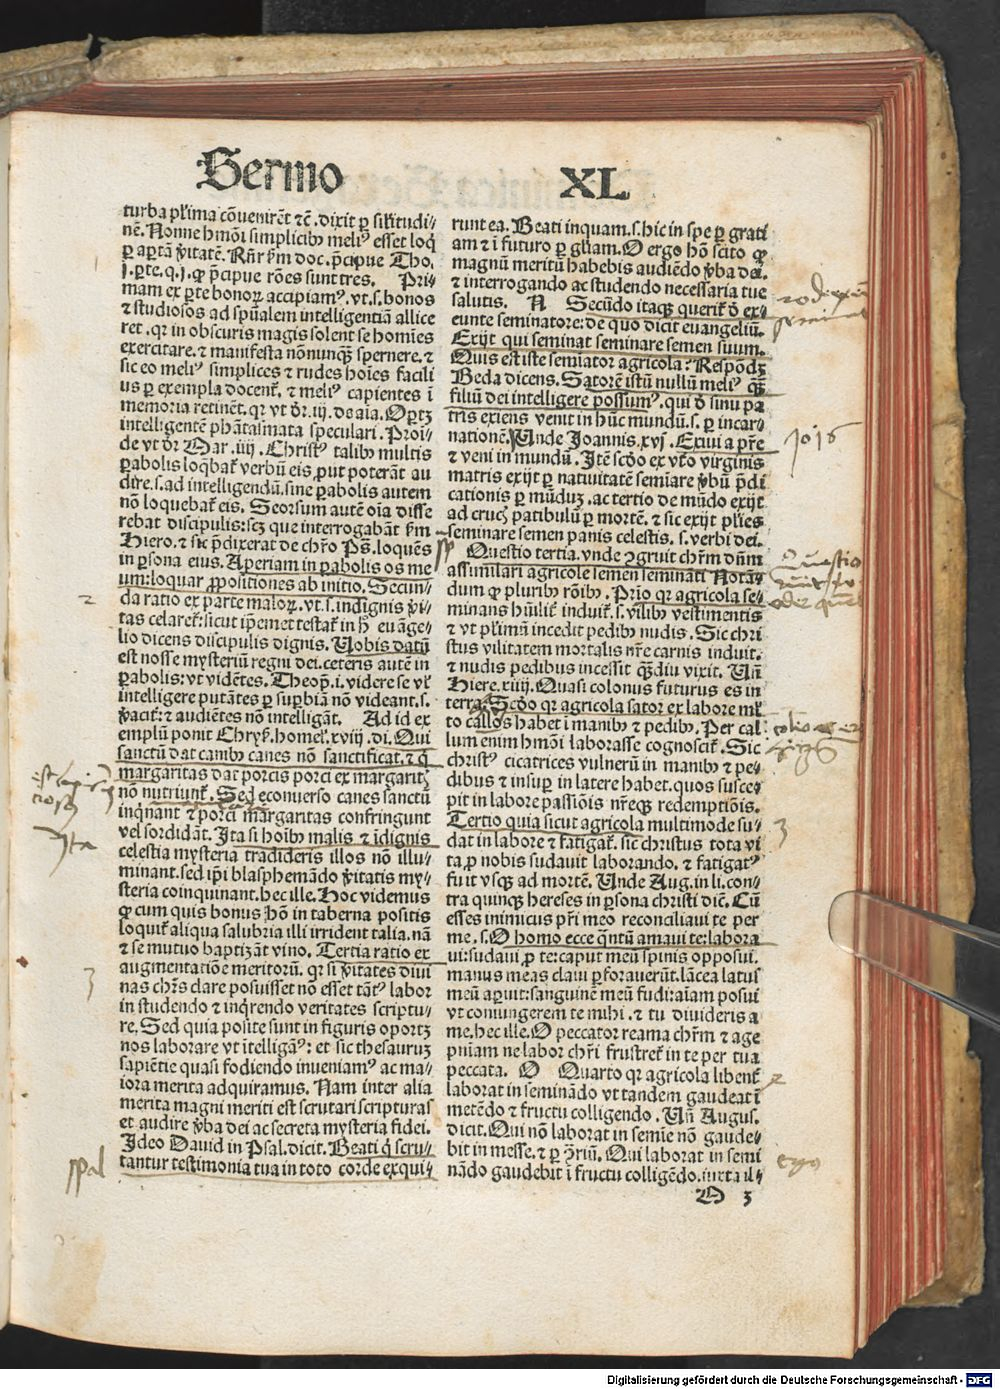 Sermo XL
turba plʼima cōuenirēt ⁊cͤ. dixit ꝑ sil̓itudi⸗
nē. Nonne hmōi simplicibꝰ meliꝰ esset loq̇
ꝑ aꝑtā v̓itatē. Rn̄r ẜm doc. p̄cipue Tho.
j. ꝑte. q. j. ꝙ p̄cipue rōes sunt tres. Pri⸗
mam ex ꝑte bonoꝝ accipiamꝰ. vt. s. bonos
⁊ studiosos ad spūalem intelligentiā allice
ret. qꝛ in obscuris magis solent se homīes
exercitare. ⁊ manifesta nōnunqꝫ spernere. ⁊
sic eo meliꝰ simplices ⁊ rudes hoīes facili
us ꝑ exempla docent̃. ⁊ meliꝰ capientes ī
memoria retinēt. qꝛ vt dr̄. iij. de aīa. Oportꝫ
intelligentē phātasmata speculari. Proī⸗
de vt dr̄ Mar. iiij. Christꝰ talibꝰ multis
ꝑabolis loq̄bat̃ verbū eis ꝓut poterāt au
dire. s. ad intelligendū. sine ꝑabolis autem
nō loquebat̃ eis. Seorsum autē oīa disse
rebat discipulis: scꝫ que interrogabāt ẜm
Hiero. ⁊ sic p̄dixerat de chr̄o Ps̄. loquēs
in ꝑsona eius. Aperiam in ꝑabolis os me
um: loquar ꝓpositiones ab initio. Secun⸗
da ratio ex parte maloꝝ. vt. s. indignis v̓i⸗
tas celaret̃: sicut ip̄emet testat̃ in h̄ euāge⸗
lio dicens discipulis dignis. Uobis datū
est nosse mysteriū regni dei. ceteris autē in
ꝑabolis: vt vidētes. Theop̄. i. videre se vl̓
intelligere putātes ꝑ suꝑbiā nō videant. s.
v̓aciť: ⁊ audiētes nō intelligāt. Ad id ex
emplū ponit Chryẜ. homel̓. xviij. di. Qui
sanctū dat canibꝰ canes nō sanctificat. ⁊ q̇
margaritas dat porcis porci ex margaritꝭ
nō nutriunt̃. Sed econuerso canes sanctū
inq̇nant ⁊ porci margaritas confringunt
vel sordidāt. Ita si hoībꝰ malis ⁊ īdignis
celestia mysteria tradideris illos nō illu⸗
minant. sed ip̄i blasphemādo v̓itatis my⸗
steria coinquinant. hec ille. Hoc videmus
ꝙ cum quis bonus hō in taberna positis
loquit̃ aliqua salubria illi irrident talia. nā
⁊ se mutuo baptizāt vino. Tertia ratio ex
augmentatiōe meritorū. qꝛ si v̓itates diui
nas chr̄s clare posuisset nō esset tātꝰ labor
in studendo ⁊ inq̇rendo veritates scriptu⸗
re. Sed quia posite sunt in figuris oportꝫ
nos laborare vt ītelligāꝰ: et sic thesauruꝫ
sapiētie quasi fodiendo inueniamꝰ ac ma⸗
iora merita adquiramus. Nam inter alia
merita magni meriti est scrutari scripturas
et audire v̓ba dei ac secreta mysteria fidei.
Ideo Dauid in Psal. dicit. Beati q̇ scru⸗
tantur testimonia tua in toto corde exqui⸗
runt ea. Beati inquam. s. hic in spe ꝑ grati
am ⁊ ī futuro ꝑ gl̓iam. O ergo hō scito ꝙ
magnū meritū habebis audiēdo v̓ba dei.
⁊ interrogando ac studendo necessaria tue
salutis. N Secūdo itaqꝫ querit̃ ď ex⸗
eunte seminatore: de quo dicit euangeliū.
Exijt qui seminat seminare semen suum.
Quis est iste semīator agricola? Respōdꝫ
Beda dicens. Satorē istū nullū meliꝰ qꝫ̄
filiū dei intelligere possumꝰ. qui ď sinu pa
tris exiens venit in hūc mundū. s. ꝑ incar⸗
nationē. Unde Joannis. xvj. Exiui a pr̄e
⁊ veni in mundū. Itē scd̓o ex vťo virginis
matris exijt ꝑ natiuitatē semīare v̓bū p̄di
cationis ꝑ mūduꝫ. ac tertio de mūdo exijt
ad crucꝭ patibulū ꝑ mortē. ⁊ sic exijt pl̓ies
seminare semen panis celestis. s. verbi dei.
Questio tertia. vnde ꝯgruit chr̄m dn̄m
assimilari agricole semen semināti Notā⸗
dum ꝙ pluribꝰ rōibꝰ. Prīo qꝛ agricola se⸗
minans hūilit̃ induit̃. s. vilibꝰ vestimentis
⁊ vt pl̓imū incedit pedibꝰ nudis. Sic chri
stus vilitatem mortalis nr̄e carnis induit.
⁊ nudis pedibus incessit qꝫ̄diu vixit. Un̄
Hiere. xiiij. Quasi colonus futurus es in
terra. Scd̓o qꝛ agricola sator ex labore ml̓
to callos habet ī manibꝰ ⁊ pedibꝰ. Per cal
lum enim hmōi laborasse cognoscit̃. Sic
christꝰ cicatrices vulnerū in manibꝰ ⁊ pe⸗
dibus ⁊ insuꝑ in latere habet. quos susce⸗
pit in labore passiōis nr̄eqꝫ redemptiōis.
Tertio quia sicut agricola multimode su⸗
dat in labore ⁊ fatigat̃. sic christus tota vi
ta ꝓ nobis sudauit laborando. ⁊ fatigatꝰ
fuit vsqꝫ ad mortē. Unde Aug. in li. con⸗
tra quinqꝫ hereses in ꝑsona christi dič. Cū
esses inimicus pr̄i meo reconciliaui te per
me. s. O homo ecce q̄ntū amaui te: labora
ui: sudaui ꝓ te: caput meū spinis opposui.
manus meas claui ꝑforauerūt. lācea latus
meū aꝑuit: sanguinē meū fudi: aīam posui
vt coniungerem te mihi. ⁊ tu diuideris a
me. hec ille. O peccator reama chr̄m ⁊ age
pn̄iam ne labor chr̄i frustret̃ in te per tua
peccata. O Quarto qꝛ agricola libent̃
laborat in semināďo vt tandem gaudeat ī
metēdo ⁊ fructu colligendo. Un̄ Augus.
dicit. Qui nō laborat in semīe nō gaude⸗
bit in messe. ⁊ ꝑ ꝯ̄riū. Qui laborat in semi
nādo gaudebit ī fructu colligēdo. iuxta il⸗
O 3
2
3
Jta
3
Digitalisierung gefördert durch die Deutsche Forschungsgemeinschaft - DFG